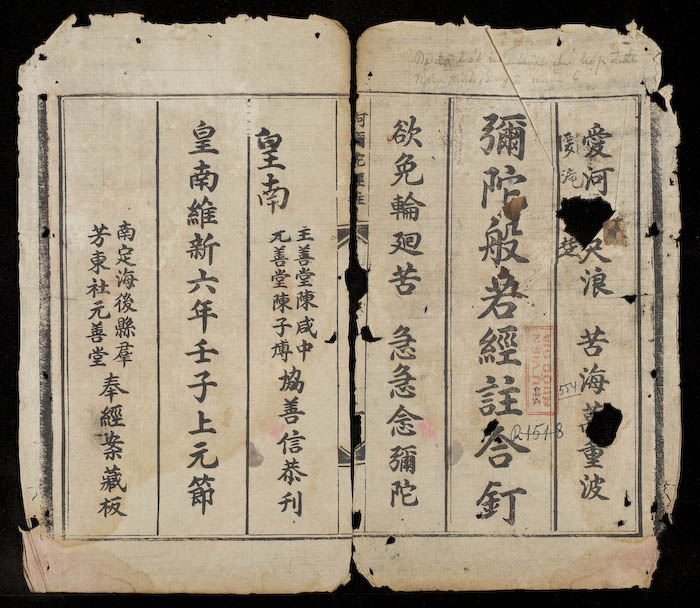 愛河尺浪 苦海萬重波
彌陀般若經註合釘
欲免輪廻苦 急急念彌陀
阿彌陀經註
皇南
主善堂陳咸中
元善堂陳子博
協善信恭刊
皇南維新六年壬子上元節
南定海後縣羣
芳東社元善堂
奉經案藏板
554